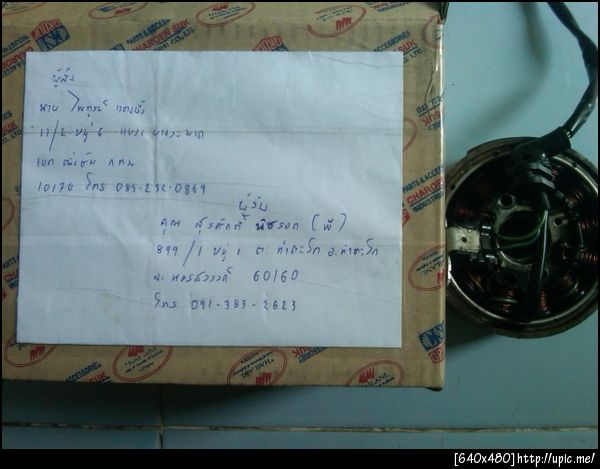 ผู้ส่ง
นาย ไพฑูรย์
11/2 หมู่ 6 แขวง บางระมาด
เขต ตลิ่งชัน กทม
10170 โทร 085-252-0869
ผู้รับ
คุณ สุรศักดิ์ นิธรอด (พี)
899/1 หมู่ 1 ต. ท่าตะโก อ. ท่าตะโก
จ. นครสวรรค์ 60160
โทร 091-383-2623
PARTS & ACCESSORIES
CHAROEN SUK
THAILAND
[640x480]http://upic.me/